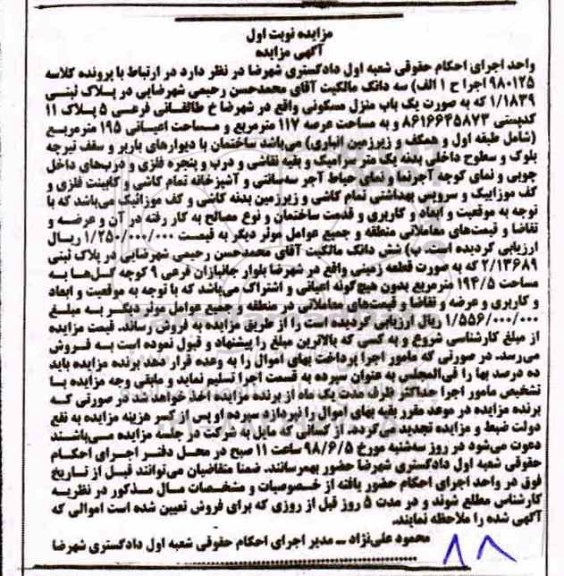 مزایده نوبت اول
آگهی مزایده
واحد اجرای احکام حقوقی شعبه اول دادگستری شهرضا در نظر دارد در ارتباط با پرونده کلاسه
۹۸۰۱۲۵ اجرا ح ۱ الف) سه دانگ مالکیت آقای محمدحسن رحیمی شهرضایی در پلاک ثبتی
۱/۱۸۳۹ که به صورت یک باب منزل مسکونی واقع در شهرضا خ طالقانی فرعی ۵ پلاک ۱۱
کدپستی ۸۶۱۶۶۳۵۸۷۳ و به مساحت عرصه ۱۱۷ مترمربع و مساحت اعیانی ۱۹۵ مترمربع
(شامل طبقه اول و همکف و زیرزمین انباری) می‌باشد ساختمان با دیوارهای باربر و سقف تیرچه
بلوک و سطوح داخلی بدنه یک متر سرامیک و بقیه نقاشی و درب و پنجره فلزی و درب‌های داخل
چوبی و نمای کوچه آجرنما و نمای حیاط آجر سه‌سانتی و آشپزخانه تمام کاشی و کابینت فلزی و
کف موزاییک و سرویس بهداشتی تمام کاشی و زیرزمین بدنه کاشی و کف موزائیک می‌باشد که با
توجه به موقعیت و ابعاد و کاربری و قدمت ساختمان و نوع مصالح به کار رفته در آن و عرضه و
تقاضا و قیمت‌های معاملاتی منطقه و جمیع عوامل موثر دیگر به قیمت ۱/۲۵۰/۰۰۰/۰۰۰ ریال
ارزیابی گردیده است. ب) شش دانگ مالکیت آقای محمدحسن رحیمی شهرضایی در پلاک ثبتی
۲/۱۳۶۸۹ که به صورت قطعه زمینی واقع در شهرضا بلوار جانبازان فرعی ۹ کوچه گل‌ها به
مساحت ۱۹۴/۵ مترمربع بدون هیچ‌گونه اعیانی و اشتراک می‌باشد که با توجه به موقعیت و ابعاد
و کاربری و عرضه و تقاضا و قیمت‌های معاملاتی در منطقه و جمیع عوامل موثر دیگر به مبلغ
۱/۵۵۶/۰۰۰/۰۰۰ ریال ارزیابی گردیده است را از طریق مزایده به فروش رساند. قیمت مزایده
از مبلغ کارشناسی شروع و به کسی که بالاترین مبلغ را پیشنهاد و قبول نموده است به فروش
می‌رسد. در صورتی که مامور اجرا پرداخت بهای اموال را به وعده قرار دهد برنده مزایده باید
ده درصد بها را فی‌المجلس به عنوان سپرده به قسمت اجرا تسلیم نماید و مابقی وجه مزایده با
تشخیص مامور اجرا حداکثر ظرف مدت یک ماه از برنده مزایده اخذ خواهد شد در صورتی که
برنده مزایده در موعد مقرر بقیه بهای اموال را نپردازد سپرده او پس از کسر هزینه مزایده به نفع
دولت ضبط و مزایده تجدید می‌گردد. از کسانی که مایل به شرکت در جلسه مزایده می‌باشند
دعوت می‌شود در روز سه‌شنبه مورخ ۹۸/۶/۵ ساعت ۱۱ صبح در محل دفتر اجرای احکام
حقوقی شعبه اول دادگستری شهرضا حضور بهمرسانند. ضمنا متقاضیان می‌توانند قبل از تاریخ
فوق در واحد اجرای احکام حضور یافته از خصوصیات و مشخصات مال مذکور در نظریه
کارشناس مطلع شوند و در مدت ۵ روز قبل از روزی که برای فروش تعیین شده است اموالی که
آگهی شده را ملاحظه نمایند.
محمود علی‌نژاد – مدیر اجرای احکام حقوقی شعبه اول دادگستری شهرضا
۸۸